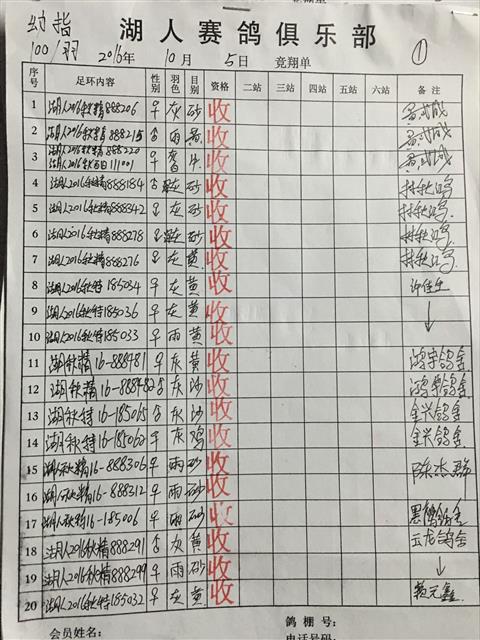 幼指
100/羽
湖人赛鸽俱乐部
2016年 10月 5日 竞翔单 ①
序号 足环内容 性别 羽色 目别 资格 二站 三站 四站 五站 六站 备注
1 湖人2016秋精888206 ♀ 灰 砂 收
2 湖人2016秋精888215 ♀ 雨 黄 收
3 湖人2016秋精888220 湖人2016秋百日111001 ♀ 牛 收
4 湖人2016秋精888184 ♂ 灰 砂 收
5 湖人2016秋精888342 ♀ 灰 砂 收
6 湖人2016秋精888278 砂 收
7 湖人2016秋精888276 ♀ 灰 黄 收
8 湖人2016秋特185034 ♀ 灰 黄 收
9 湖人2016秋特185036 ♀ 灰 黄 收 ↓
10 湖人2016秋特185033 ♀ 雨 黄 收
11 湖秋精16-888481 ♀ 灰 黄 收 鸿宇鸽舍
12 湖秋精16-888482 ♂ 灰 沙 收 鸽舍
13 湖秋特16-185065 ♂ 灰 沙 收 金兴鸽舍
14 湖秋特16-185062 ♀ 灰 鸡 收 金兴鸽舍
15 湖秋精16-888306 ♀ 雨 砂 收 陈杰
16 湖人秋精16-888312 ♀ 雨 砂 收
17 湖人秋特16-185006 ♀ 雨 砂 收 鸽舍
18 湖人2016秋精888291 ♂ 灰 黄 收 云龙鸽舍
19 湖人2016秋精888299 ♀ 雨 砂 收 ↓
20 湖人2016秋特185032 ♀ 灰 黄 收 元鑫
会员姓名: 鸽棚号:
电话号码: